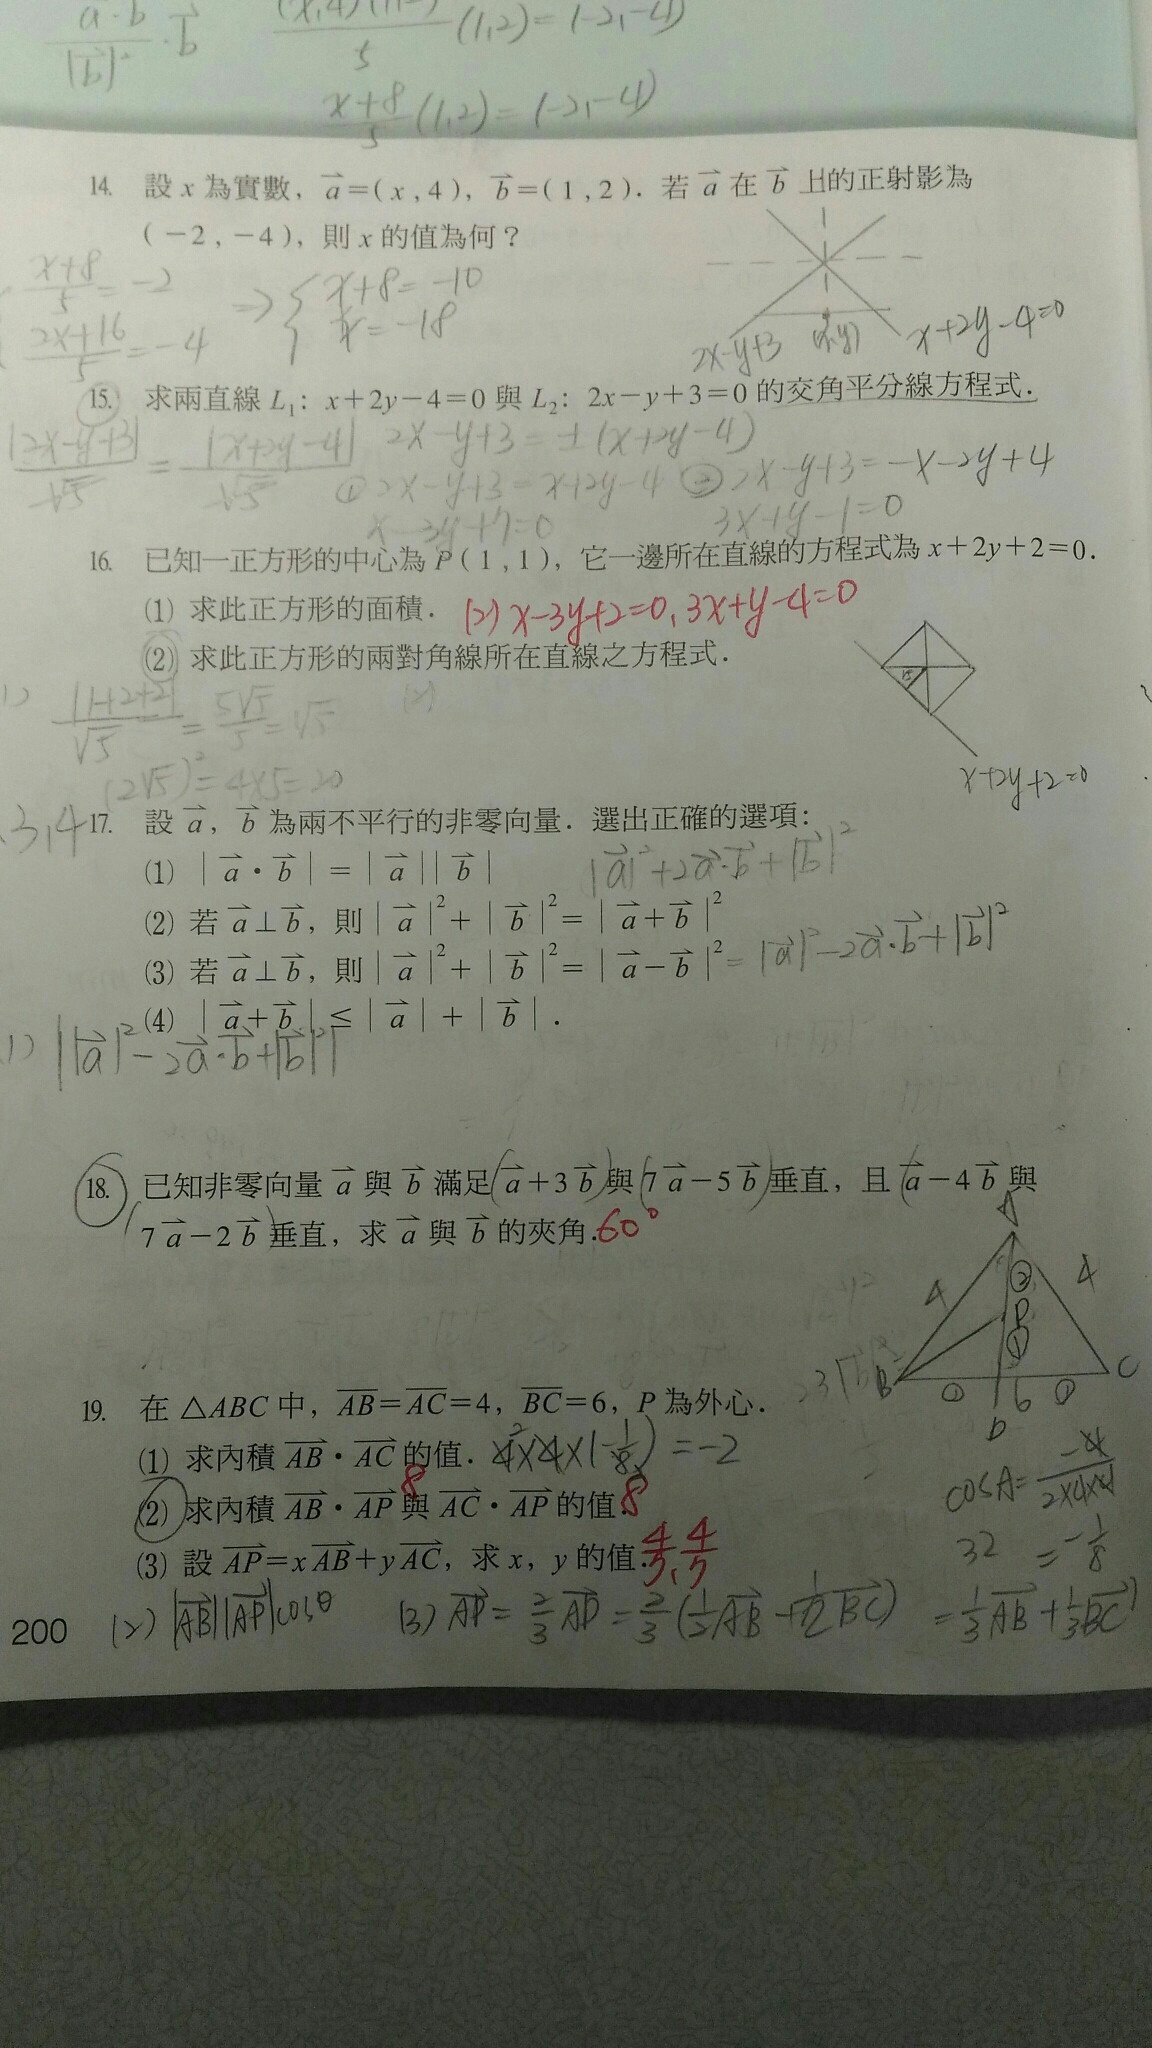 a·b/|b|² ·b (x,4)(1,2)/5 (1,2)=(-2,-4)
x+8/5 (1,2)=(-2,-4)
14. 設 x 為實數，a=(x,4)，b=(1,2)．若 a 在 b 上的正射影為
(-2,-4)，則 x 的值為何？
x+8/5=-2 ⇒ { x+8=-10
2x+16/5=-4 x=-18
2x-y+3 (x,y) x+2y-4=0
15. 求兩直線 L₁：x+2y-4=0 與 L₂：2x-y+3=0 的交角平分線方程式．
|2x-y+3|/√5 = |x+2y-4|/√5 2x-y+3=±(x+2y-4)
① 2x-y+3=x+2y-4 ② 2x-y+3=-x-2y+4
x-3y+7=0 3x+y-1=0
16. 已知一正方形的中心為 P(1,1)，它一邊所在直線的方程式為 x+2y+2=0．
(1) 求此正方形的面積． (2) x-3y+2=0, 3x+y-4=0
(2) 求此正方形的兩對角線所在直線之方程式．
|1+2+2|/√5 = 5√5/5 = √5 (2)
(2√5)²=4×5=20
x+2y+2=0
3,4
17. 設 a，b 為兩不平行的非零向量．選出正確的選項：
(1) |a·b|=|a||b| |a|²+2a·b+|b|²
(2) 若 a⊥b，則 |a|²+|b|²=|a+b|²
(3) 若 a⊥b，則 |a|²+|b|²=|a-b|² =|a|²-2a·b+|b|²
(4) |a+b|≤|a|+|b|．
1) ||a|²-2a·b+|b|²|
18. 已知非零向量 a 與 b 滿足(a+3b)與(7a-5b)垂直，且(a-4b 與
(7a-2b)垂直，求 a 與 b 的夾角．60°
A
4 ② 4
P
①
B C
① 6 ①
D
19. 在 △ABC 中，AB=AC=4，BC=6，P 為外心．
(1) 求內積 AB·AC 的值． 4×4×(-1/8)=-2
cosA=-4/2×4×4
(2) 求內積 AB·AP 與 AC·AP 的值．8
8
32 =-1/8
(3) 設 AP=xAB+yAC，求 x，y 的值．
200 (2) |AB||AP|cosθ (3) AP=2/3 AD=2/3(1/2 AB+1/2 BC) =1/3 AB+1/3 BC